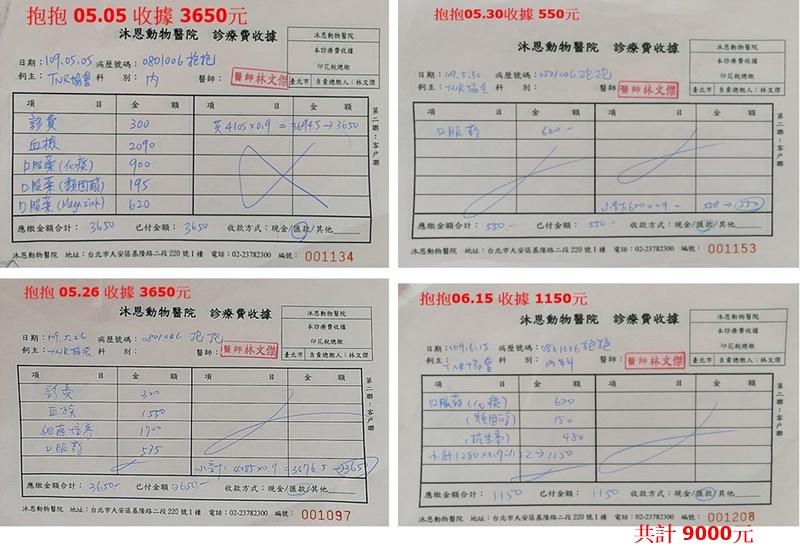 抱抱 05.05 收據 3650元
沐恩動物醫院 診療費收據
沐恩動物醫院
本診療費收據
印花稅總繳
臺北市 負責總繳人：林文傑
日期：109.05.05 病歷號碼：0801006 抱抱
飼主：TNR協會 科 別：內 醫師：醫師林文傑
項 目 金 額 項 目 金 額
診費 300 共4105x0.9 = 3694.5→3650
血檢 2090
口服藥(化痰) 900
口服藥(類固醇) 195
口服藥( ) 620
應繳金額合計：3650 已付金額：3650 收款方式：現金/匯款/其他
沐恩動物醫院 地址：台北市大安區基隆路二段220號1樓 電話：02-23782300 編號：001134
抱抱 05.30收據 550元
沐恩動物醫院 診療費收據
沐恩動物醫院
本診療費收據
印花稅總繳
臺北市 負責總繳人：林文傑
日期：109.5.30 病歷號碼：0801006 抱抱
飼主：TNR協會 科 別： 醫師：醫師林文傑
項 目 金 額 項 目 金 額
口服藥 620.-
小計620x0.9= 558→550
應繳金額合計：550.- 已付金額：550.- 收款方式：現金/匯款/其他
沐恩動物醫院 地址：台北市大安區基隆路二段220號1樓 電話：02-23782300 編號：001153
抱抱 05.26 收據 3650元
沐恩動物醫院 診療費收據
沐恩動物醫院
本診療費收據
印花稅總繳
臺北市 負責總繳人：林文傑
日期：109.5.26 病歷號碼：0801006 抱抱
飼主：TNR協會 科 別： 醫師：醫師林文傑
項 目 金 額 項 目 金 額
診費 300
血檢 1550
細菌培養 1700
口服藥 535
小計：4085x0.9=3676.5→3650
應繳金額合計：3650.- 已付金額：3650.- 收款方式：現金/匯款/其他
沐恩動物醫院 地址：台北市大安區基隆路二段220號1樓 電話：02-23782300 編號：001097
抱抱06.15 收據 1150元
沐恩動物醫院 診療費收據
沐恩動物醫院
本診療費收據
印花稅總繳
臺北市 負責總繳人：林文傑
日期：109.6.15 病歷號碼：0801006 抱抱
飼主：TNR協會 科 別：內科 醫師：醫師林文傑
項 目 金 額 項 目 金 額
口服藥(化痰) 620
(類固醇) 180
(抗生素) 480
小計1280x0.9=1152→1150
應繳金額合計：1150 已付金額：1150 收款方式：現金/匯款/其他
沐恩動物醫院 地址：台北市大安區基隆路二段220號1樓 電話：02-23782300 編號：001208
共計 9000元